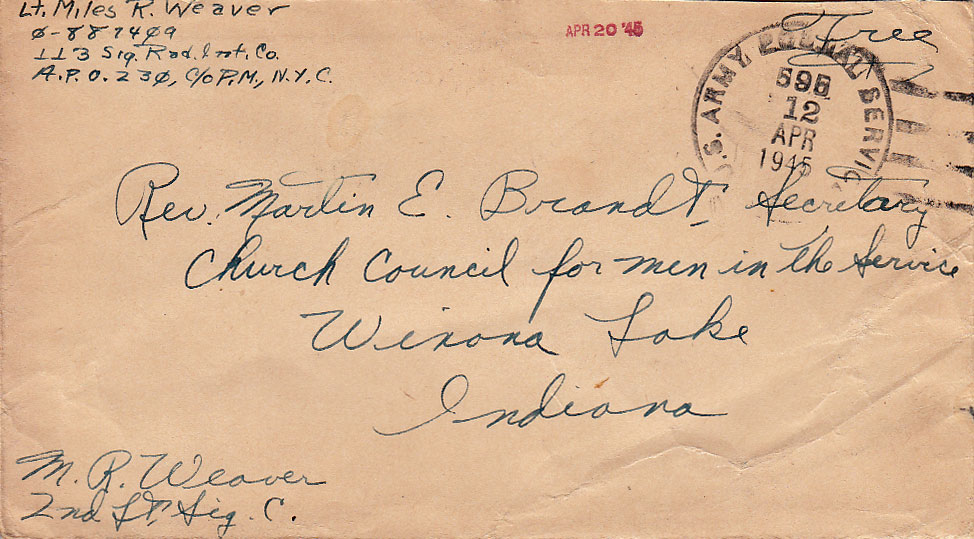 Lt. Miles R. Weaver
O-887409
113 Sig. Rad. Int. Co.
A.P.O. 230, C/o P.M., N.Y.C.
APR 20 '45
Free
U.S. ARMY POSTAL SERVICE
595
12
APR
1945
Rev. Martin E. Brandt, Secretary
Church Council for men in the Service
Winona Lake
Indiana
M. R. Weaver
2nd Lt, Sig. C.